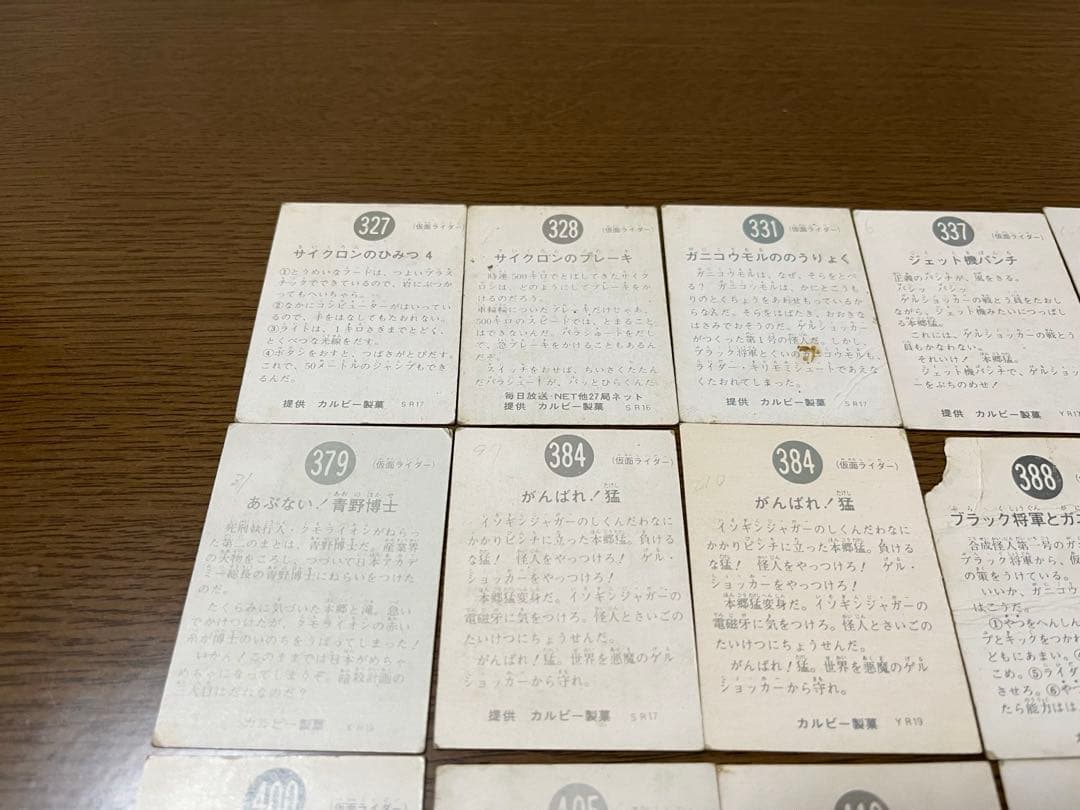 327
(仮面ライダー)
サイクロンのひみつ 4
①とうめいなフードは、つよいプラス
チックでできているので、岩にぶつか
ってもへいちゃら。
②なかにコンピューターがはいってい
るので、手をはなしてもたおれない。
③ライトは、1キロさきまでとどく、
とくべつな光線をだす。
④ボタンをおすと、つばさがとびだす。
これで、50メートルのジャンプもでき
るんだ。
提供 カルビー製菓 SR17
328
(仮面ライダー)
サイクロンのブレーキ
時速500キロでとばしてきたサイク
ロンは、どのようにしてブレーキをか
けるのだろう。
車輪についたブレーキだけじゃあ、
500キロのスピードでは、とまること
はできないんだ。パラシュートをだし
て、急ブレーキをかけることもあるん
だぞ。
スイッチをおせば、ちいさくたたん
だパラシュートが、パッとひらくんだ
毎日放送・NET他27局ネット
提供 カルビー製菓 SR16
331
(仮面ライダー)
ガニコウモルののうりょく
ガニコウモルは、なぜ、そらをとべ
る? ガニコウモルは、かにとこうも
りのとくちょうをあわせもっているか
らなんだ。そらをはばたき、おおきな
はさみでおそうのだ。ゲルショッカー
がつくった第1号の怪人だ。しかし、
ブラック将軍とくいの コウモルも、
ライダー・キリモミシュートであえな
くたおれてしまった。
提供 カルビー製菓 SR17
337
(仮面ライダー)
ジェット機パンチ
正義のパンチが、風をきる。
バシッ、バシッ
ゲルショッカーの戦とう員をたおし
ながら、ジェット機みたいにつっぱし
る本郷猛。
これには、ゲルショッカーの戦とう
員もかなわない。
それいけ! 本郷猛。
ジェット機パンチで、ゲルショッカ
ーをぶちのめせ!
提供 カルビー製菓
379
(仮面ライダー)
あぶない! 青野博士
死刑執行人・クモライオンがねらっ
た第二のまとは、青野博士だ。産業界
の大物をころし、つづいて日本アカデ
ミー総長の青野博士にねらいをつけた
のだ。
たくらみに気づいた本郷と滝。急い
でかけつけたが、クモライオンの赤い
糸が博士のいのちをうばってしまった!
いかん! このままでは日本がめちゃ
めちゃになってしまうぞ。暗殺計画の
三人目はだれなのだ?
カルビー製菓 YR19
384
(仮面ライダー)
がんばれ! 猛
イソギンジャガーのしくんだわなに
かかりピンチに立った本郷猛。負ける
な猛! 怪人をやっつけろ! ゲル・
ショッカーをやっつけろ!
本郷猛変身だ。イソギンジャガーの
電磁牙に気をつけろ。怪人とさいごの
たいけつにちょうせんだ。
がんばれ! 猛。世界を悪魔のゲル
ショッカーから守れ。
提供 カルビー製菓 SR17
384
(仮面ライダー)
がんばれ! 猛
イソギンジャガーのしくんだわなに
かかりピンチに立った本郷猛。負ける
な猛! 怪人をやっつけろ! ゲル・
ショッカーをやっつけろ!
本郷猛変身だ。イソギンジャガーの
電磁牙に気をつけろ。怪人とさいごの
たいけつにちょうせんだ。
がんばれ! 猛。世界を悪魔のゲル
ショッカーから守れ。
カルビー製菓 YR19
388
ブラック将軍とガニ
合成怪人第一号のガニ
ブラック将軍から、仮
の策をうけている。
いいか、ガニコウ
はこうだ。
①やつをへんしん
プとキックをつかわ
ともにあまい。
こめ。⑤ライダ
させろ。⑥
たら能力は
(仮面ライダー)
(仮面ライダー)
(仮面ライダー)